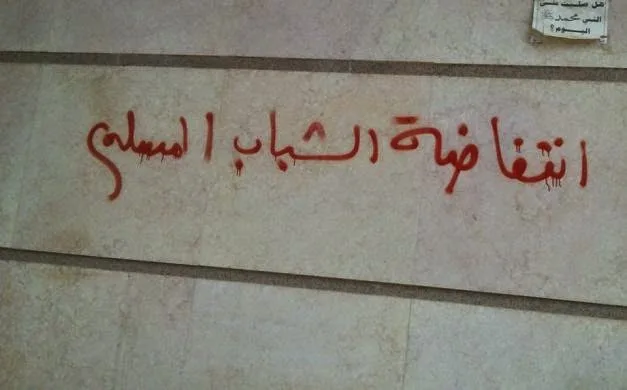 هل صليت على
النبي محمد ﷺ
اليوم؟
انتفاضة الشباب المسلم